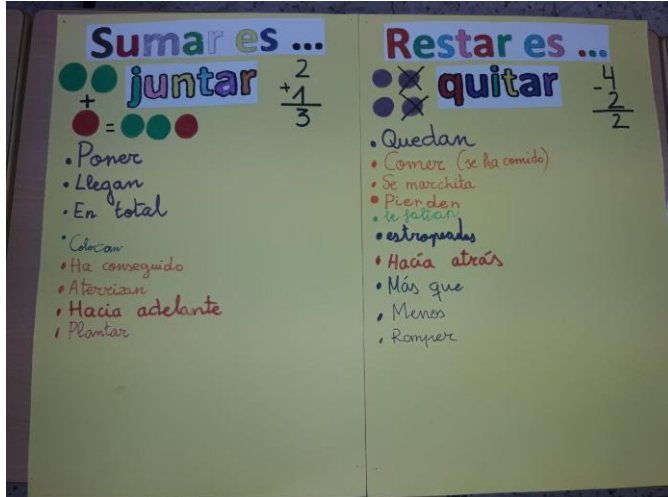 Sumar es ...
juntar
2
+1
3
+
=
• Poner
• Llegan
• En total
• Colocan
• Ha conseguido
• Aterrizan
• Hacia adelante
• Plantar
Restar es ...
quitar
-4
2
2
• Quedan
• Comer (se ha comido)
• Se marchita
• Pierden
• le faltan
• estropeados
• Hacía atrás
• Más que
• Menos
• Romper